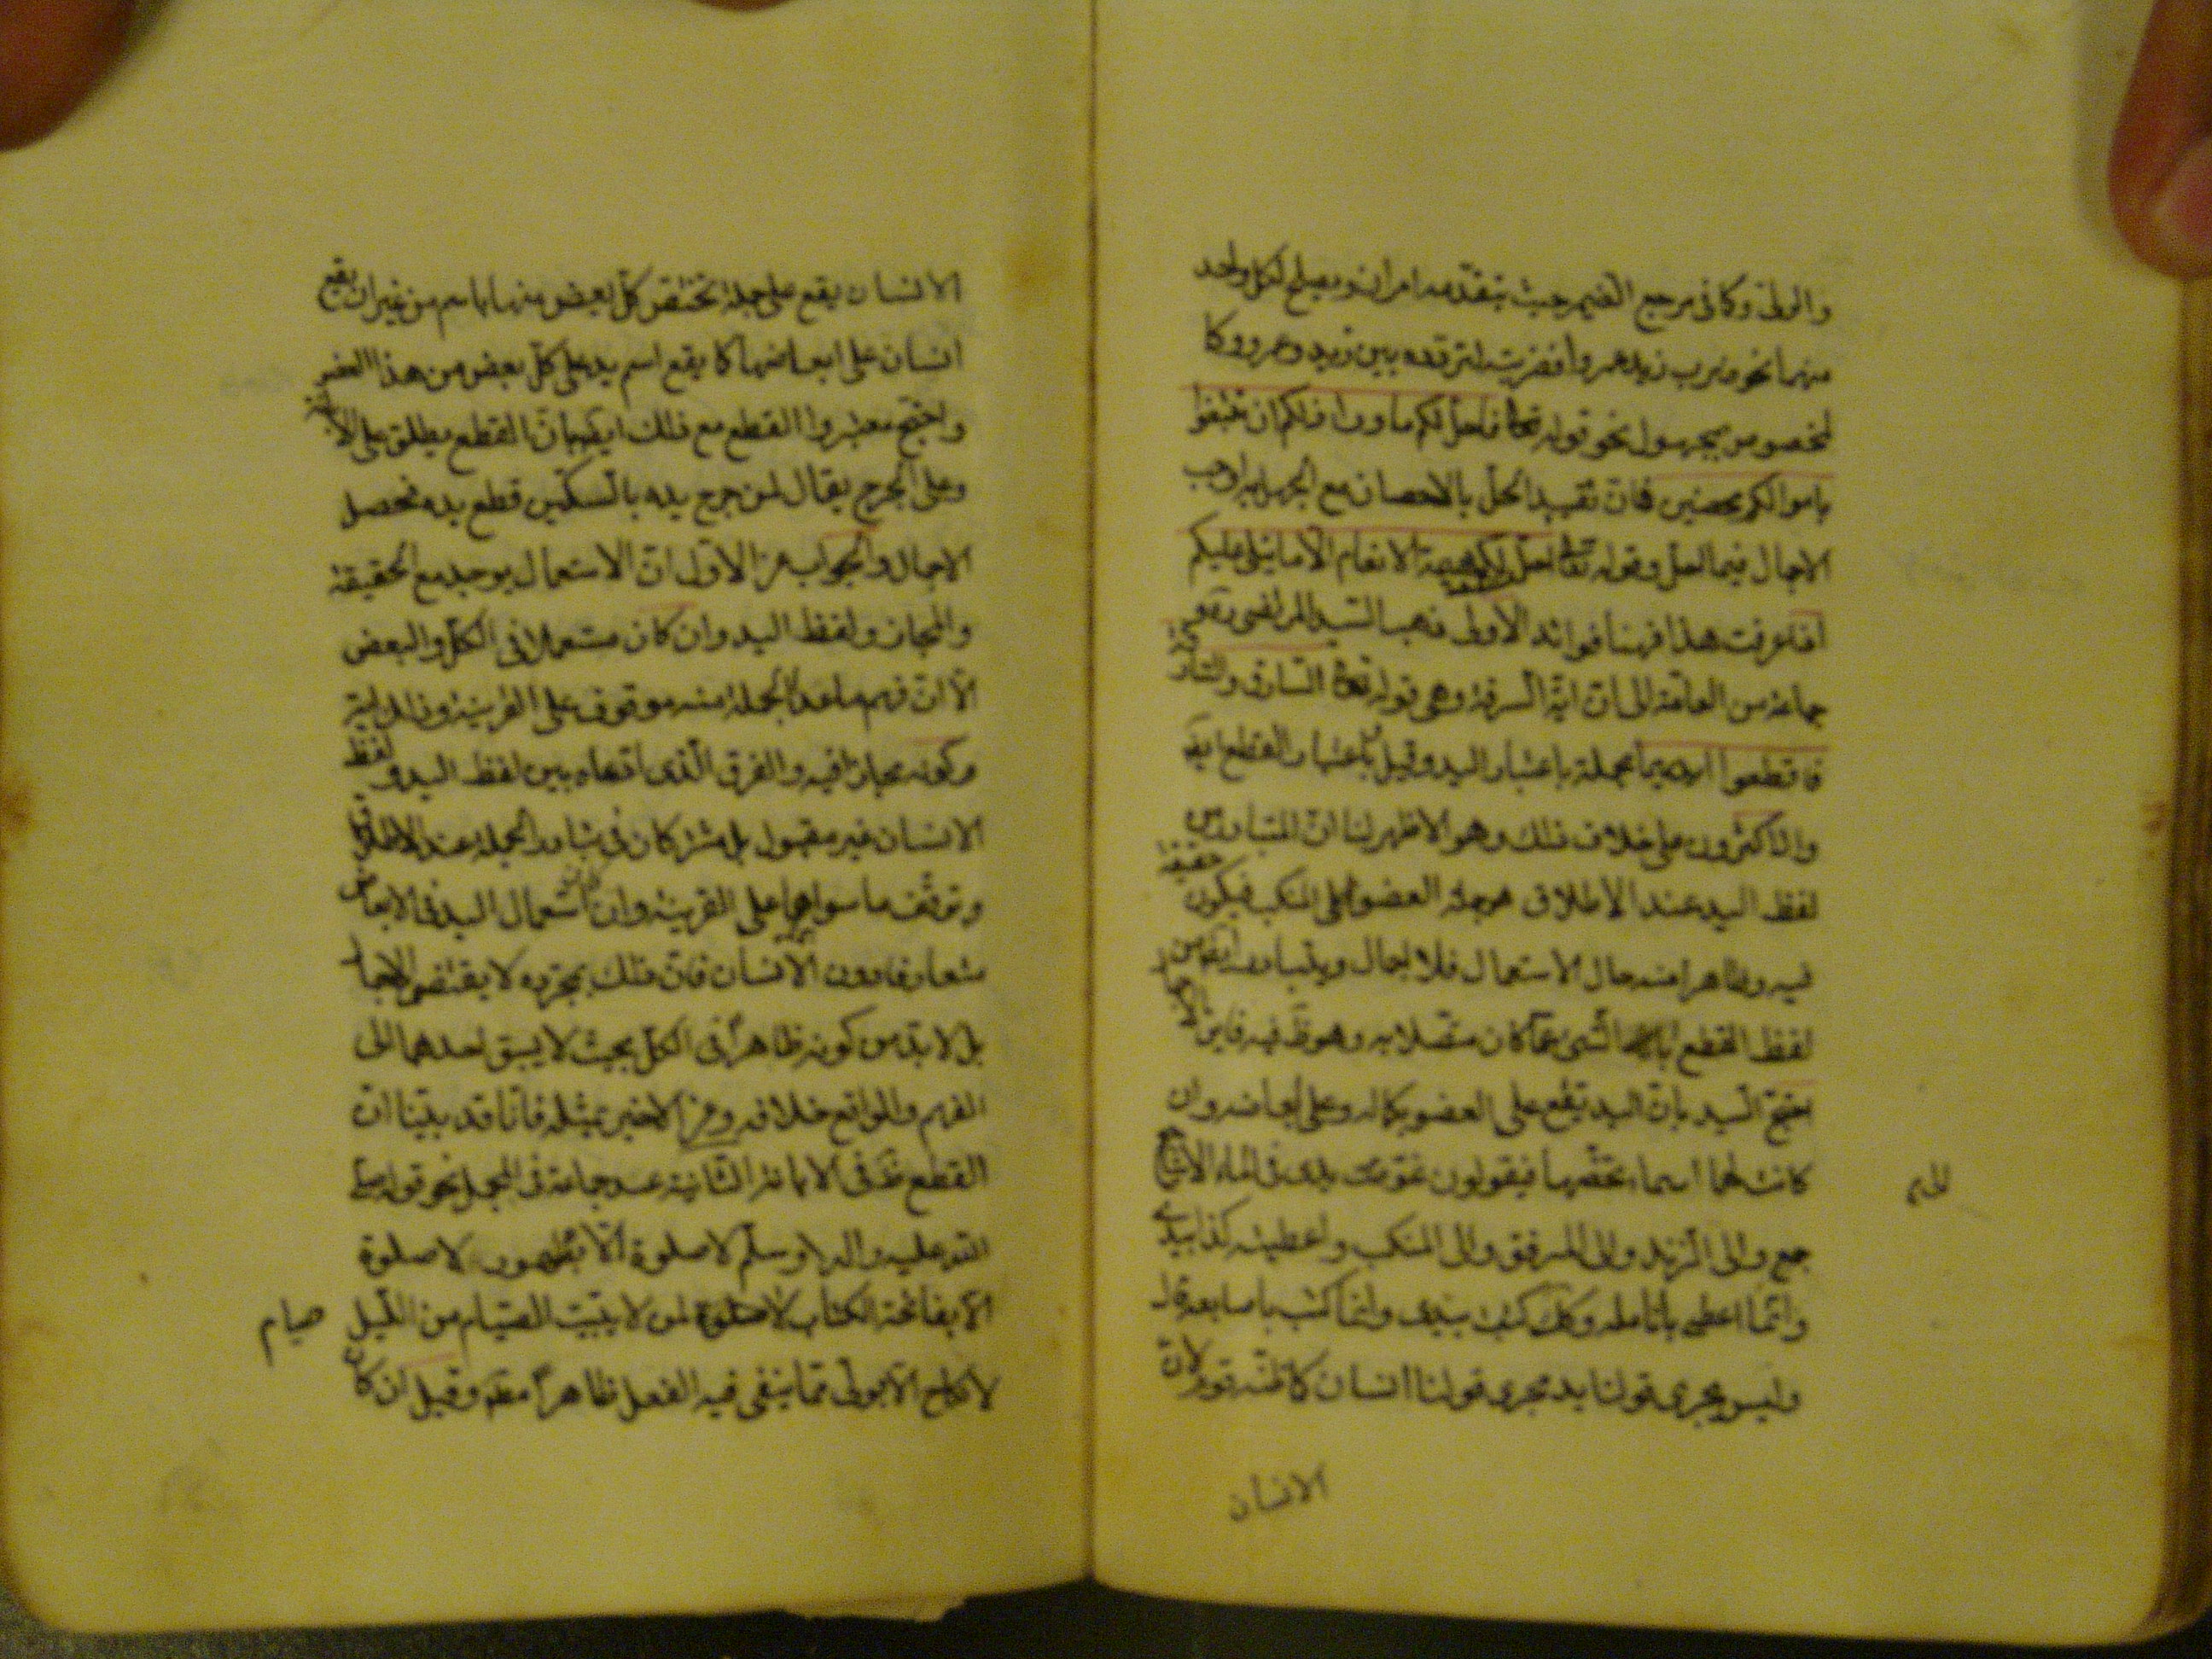 والولى وكما فى مرجع الضمير حيث يتقدمه امران ويصلح لكل واحد
منهما نحو ضرب زيد عمروا فضربته لتردده بين زيد وعمرو وكا
لمخصوص بمجهول نحو قوله تعالى فاحل لكم ما وراء ذلكم ان تبتغوا
باموالكم محصنين فان تقييد الحل بالاحصان مع الجهل به اوجب
الاجمال فيما احل وقوله تعالى احل لكم بهيمة الانعام الا ما يتلى عليكم
اذا عرفت هذا فهنا فوائد الاولى ذهب السيد المرتضى ره و
جماعة من العامة الى ان اية السرقة وهى قوله تعالى السارق والسارقة
فاقطعوا ايديهما مجملة باعتبار اليد وقيل باعتبار القطع ايضا
والاكثرون على خلاف ذلك وهو الاظهر لنا ان المتبادر من
لفظ اليد عند الاطلاق هو جملة العضو الى المنكب فيكون حقيقة
فيه وظاهرا منه حال الاستعمال فلا اجمال ويتبادر ايضا من
لفظ القطع ابانة الشى عما كان متصلا به وهو ظ فيه فاين الاجمال
احتج السيد بان اليد تقع على العضو بكماله وعلى ابعاضه وان
كانت لها اسماء تخصها فيقولون غوصت يدى فى الماء الى الاشا
للشم
جع والى الزند والى المرفق والى المنكب واعطيته كذا بيدى
وانما اعطى بانامله وكذلك كتبت بيدى وانما كتب باصابعه قال
وليس يجرى قولنا يد مجرى قولنا انسان كما ظنه قوم لان
الانسان
الانسان يقع على جملة تختص كل بعض منها باسم من غير ان يقع
انسان على ابعاضها كما يقع اسم يد على كل بعض من هذا العضو
واحتج معتبروا القطع مع ذلك ايضا بان القطع يطلق على الابانة
وعلى الجرح يقال لمن جرح يده بالسكين قطع يده فحصل
الاجمال والجواب عن الاول ان الاستعمال يوجد مع الحقيقة
والمجاز ولفظ اليد وان كان مستعملا فى الكل والبعض
الا ان فهم ما عدا الجملة منه موقوف على القرينة وذلك اية
كونه مجازا فيه والفرق الذى ادعاه بين لفظ اليد ولفظ
الانسان غير مقبول بل مشتركان فى تبادر الجملة عند الاطلاق
وتوقف ما سواها على القرينة وان كان استعمال اليد فى الابعاض
متعارفا دون الانسان فان ذلك بمجرده لا يقتضى الاجمال
بل لابد من كونه ظاهرا فى الكل بحيث لا يسبق احدهما الى
الفهم والواقع خلافه وعن الاخير بمثله فانا قد بينا ان
القطع ظ فى الابانة الثانية عد جماعة فى المجمل نحو قوله صلى
الله عليه واله وسلم لا صلوة الا بطهور لا صلوة
الا بفاتحة الكتاب لا صلوة لمن لا يبيت الصيام من الليل
صيام
لا نكاح الا بولى مما ينفى فيه الفعل ظاهرا مقم وقيل ان كان